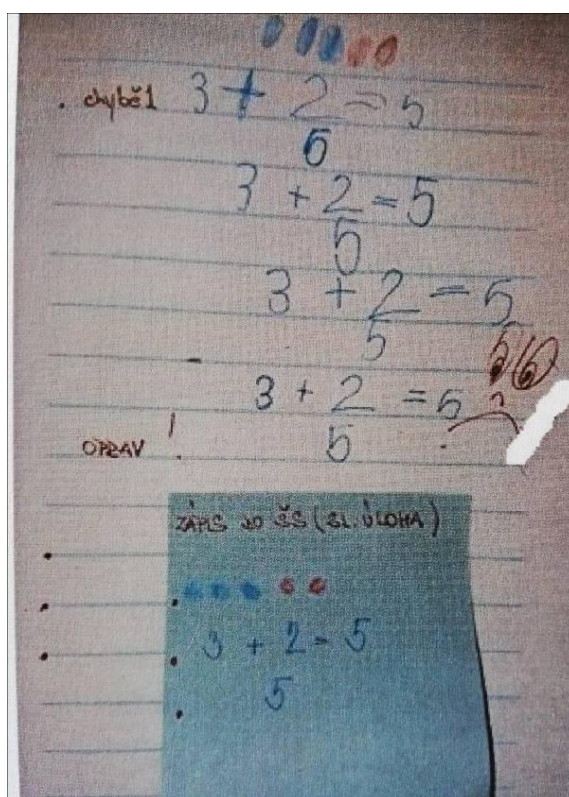 . chybě1 3 + 2 = 5
5
3 + 2 = 5
5
3 + 2 = 5
5
- 3 + 2 = 5
OPRAV ! 5
ZÁPIS DO ŠS (SL. ÚLOHA)
3 + 2 = 5
5